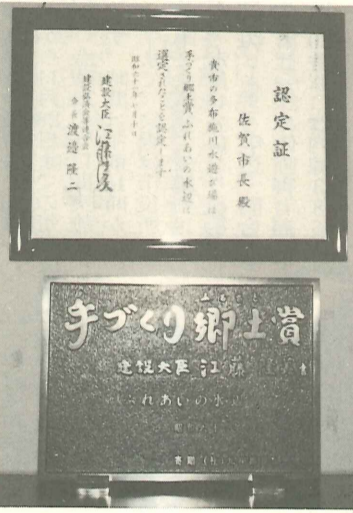 認定証
佐賀市長殿
貴市の多布施川水遊び場は
手づくり郷土賞ふれあいの水辺に
選定されたことを認定します
昭和六十一年 月十日
建設大臣 江藤隆美
会長 渡邉隆二
手づくり郷土賞
建設大臣 江藤
ふれあいの水辺
寄贈